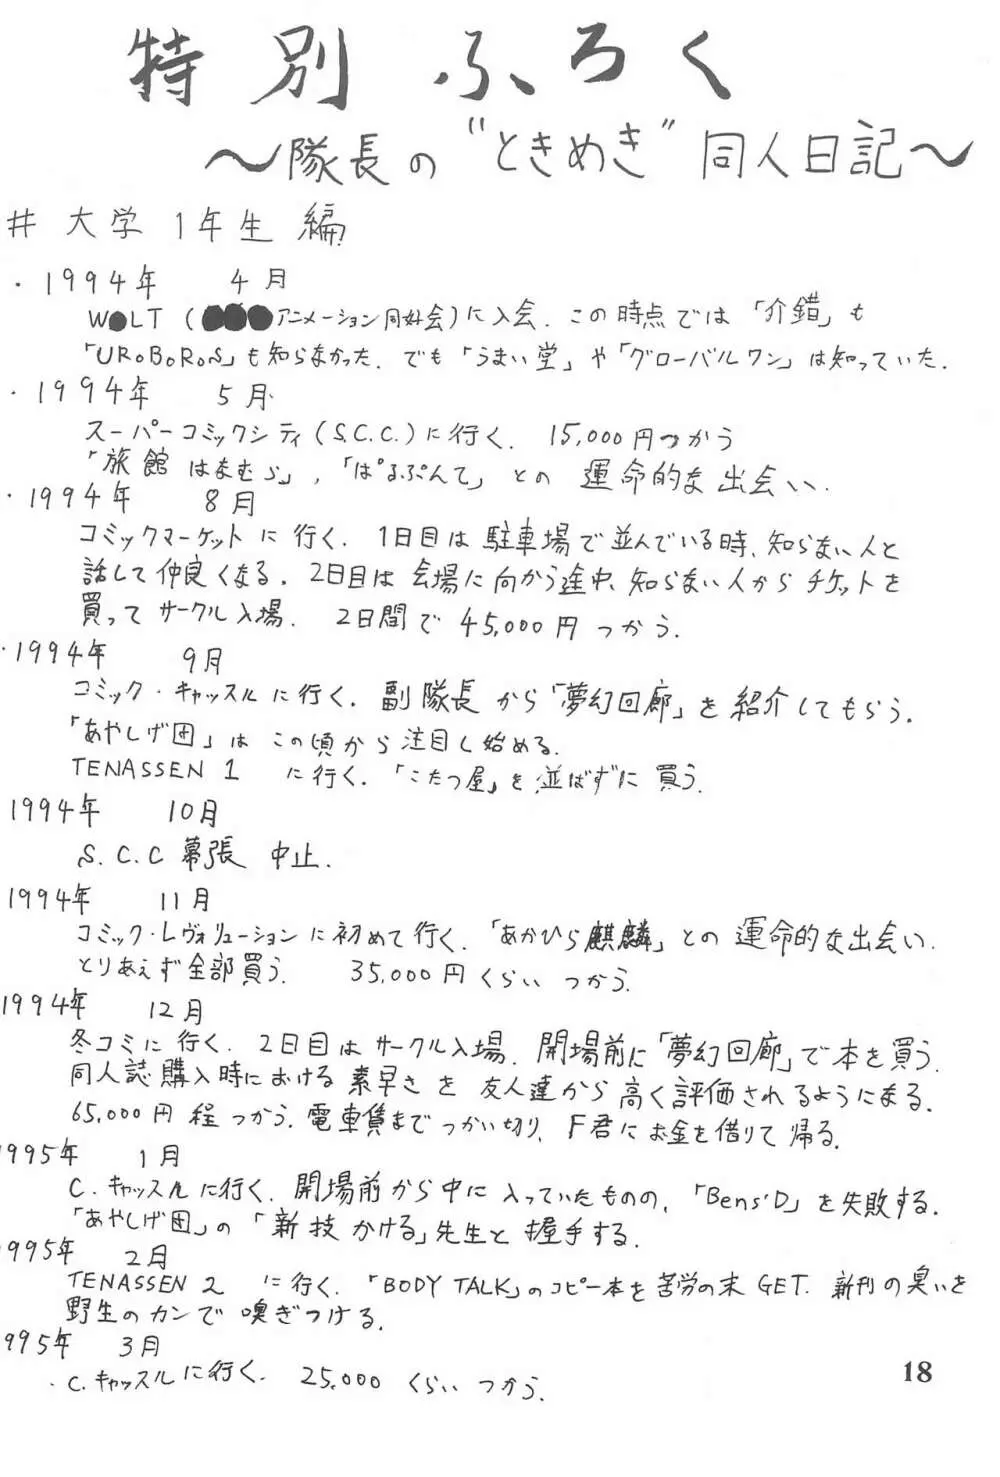 特別ふろく
～隊長の“ときめき”同人日記～
# 大学1年生編
・1994年 4月
W●LT(●●●アニメーション同好会)に入会. この時点では「介錯」も
「URoBoRoS」も知らなかった. でも「うまい堂」や「グローバルワン」は知っていた.
・1994年 5月
スーパーコミックシティ(S.C.C.)に行く. 15,000円つかう
「旅館はなむら」,「ぱるぷんて」との運命的な出会い.
・1994年 8月
コミックマーケットに行く. 1日目は駐車場で並んでいる時、知らない人と
話して仲良くなる. 2日目は会場に向かう途中、知らない人からチケットを
買ってサークル入場. 2日間で45,000円つかう.
・1994年 9月
コミック・キャッスルに行く. 副隊長から「夢幻回廊」を紹介してもらう.
「あやしげ団」はこの頃から注目し始める.
TENASSEN 1 に行く.「こたつ屋」を並ばずに買う.
1994年 10月
S.C.C幕張 中止.
1994年 11月
コミック・レヴォリューションに初めて行く.「あかひら麒麟」との運命的な出会い.
とりあえず全部買う. 35,000円くらいつかう.
1994年 12月
冬コミに行く. 2日目はサークル入場. 開場前に「夢幻回廊」で本を買う.
同人誌購入時における素早さを友人達から高く評価されるようになる.
65,000円程つかう. 電車賃までつかい切り、F君にお金を借りて帰る.
1995年 1月
C.キャッスルに行く. 開場前から中に入っていたものの、「Bens'D」を失敗する.
「あやしげ団」の「新技かける」先生と握手する.
1995年 2月
TENASSEN 2 に行く.「BODY TALK」のコピー本を苦労の末GET. 新刊の臭いを
野生のカンで嗅ぎつける.
995年 3月
・C.キャッスルに行く. 25,000くらいつかう.
18